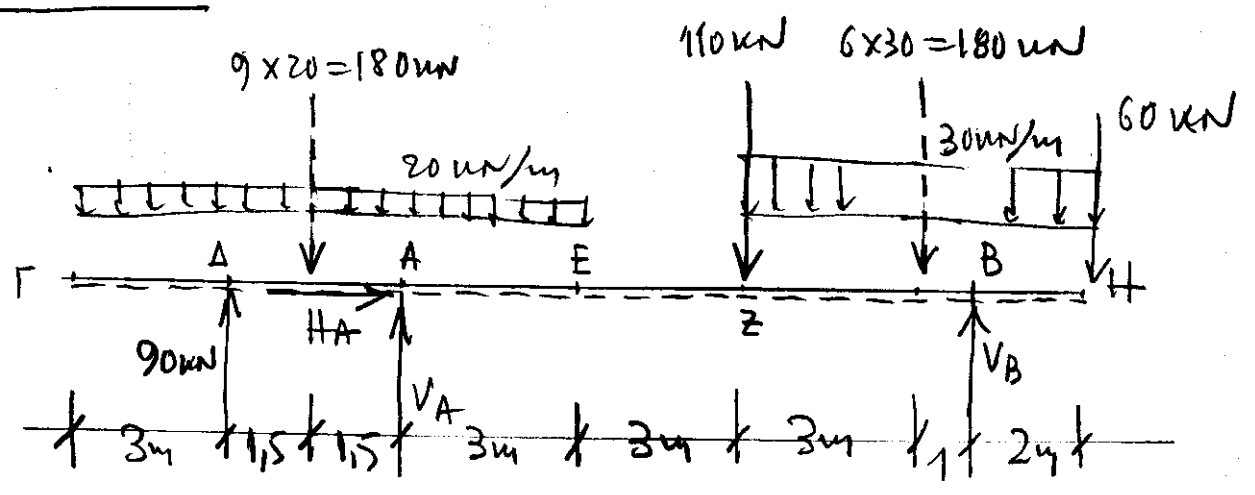 9 × 20 = 180 kN
110 kN
6 × 30 = 180 kN
60 kN
20 kN/m
30 kN/m
Γ
Δ
A
E
Z
B
H
90 kN
HA
VA
VB
3m
1,5
1,5
3m
3m
3m
1
2m